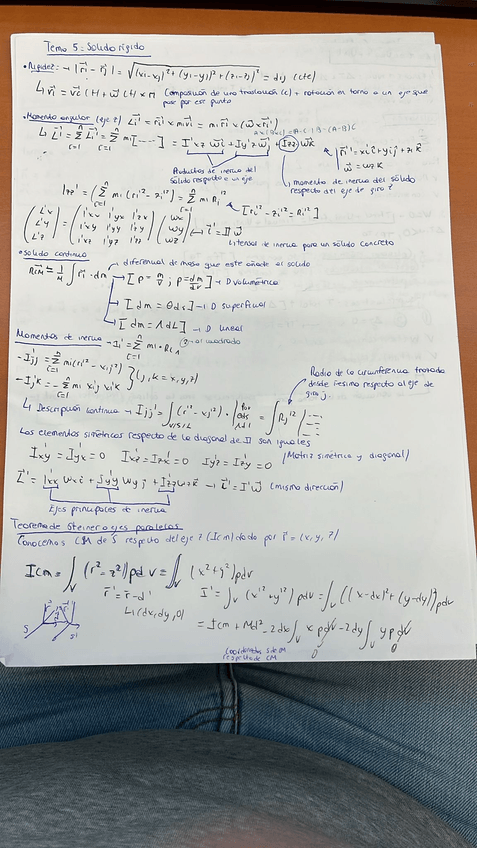 Tema 5: Solido rígido
• Rigidez: → |r⃗i - r⃗j| = √((xi-xj)²+(yi-yj)²+(zi-zj)²) = dij (cte)
↳ v⃗i = v⃗c(t) + w⃗(t) × r⃗i Composición de una traslación (c) + rotación en torno a un eje que pase por ese punto
• Momento angular (eje z) L⃗i' = r⃗i' × mi v⃗i = mi r⃗i' × (w⃗ × r⃗i')
↳ L⃗' = Σ L⃗i' = Σ mi [----] = I'xz w⃗i + I'yz w⃗j + Izz w⃗k
r⃗i' = xi i + yi j + zi k
w⃗ = wz k
Productos de inercia del sólido respecto a un eje
momento de inercia del sólido respecto del eje de giro z
Izz' = (Σ mi (ri'² - zi'²) = Σ mi Ri'² [ri'² - zi'² = Ri'²]
(L'x L'y L'z) = (I'xx I'yx I'zx I'xy I'yy I'zy I'xz I'yz I'zz) (wx wy wz) → L⃗' = II w⃗
↳ tensor de inercia para un sólido concreto
• Solido continuo
diferencial de masa que este añade al solido
R⃗cm = 1/M ∫ r⃗i · dm
→ [ρ = m/v ; ρ = dm/dv] → D volumétrica
→ [dm = σ ds] → D superficial
→ [dm = λ dL] → D lineal
Momentos de inercia
- Ijj' = Σ mi (ri'² - xij'²)
- Ij'k = - Σ mi xij' xik' } (j, k = x, y, z)
Radio de la circunferencia trazada desde iésimo respecto al eje de giro j
↳ Descripción continua → Ijj' = ∫ (ri'² - xj'²) · | ρdv σds λdl = ∫ Rj'² | ---
Los elementos simétricos respecto de la diagonal de II son iguales
Ixy = Iyx = 0 Ixz = Izx = 0 Iyz = Izy = 0 (Matriz simétrica y diagonal)
L⃗' = Ixx wx i + Iyy wy j + Izz wz k → L⃗' = I' w⃗ (misma dirección)
Ejes principales de inercia
Teorema de Steiner o ejes paralelos
Conocemos CM de S respecto del eje z (Icm) dado por r⃗ = (x, y, z)
Icm = ∫v (r² - z²) ρdv = ∫v (x² + y²) ρdv
r⃗' = r⃗ - d⃗
↳ (dx, dy, 0)
I' = ∫v (x'² + y'²) ρdv = ∫v ((x-dx)² + (y-dy)²) ρdv
= Icm + Md² - 2dx ∫v x ρdv - 2dy ∫v y ρdv
0 0
S S'
Coordenadas del CM respecto de CM